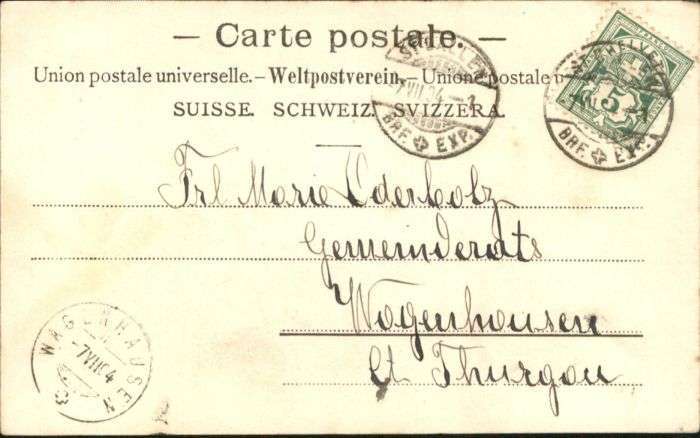 — Carte postale. —
Union postale universelle. – Weltpostverein. – Unione postale u
SUISSE. SCHWEIZ. SVIZZERA.
BRF. EXP.
7 VII 04
HELVETIA
5
BRF. EXP.
Frl Marie Oderbolz
Gemeinderats
Wagenhausen
Ct. Thurgau
WAGENHAUSEN
7 VII 04